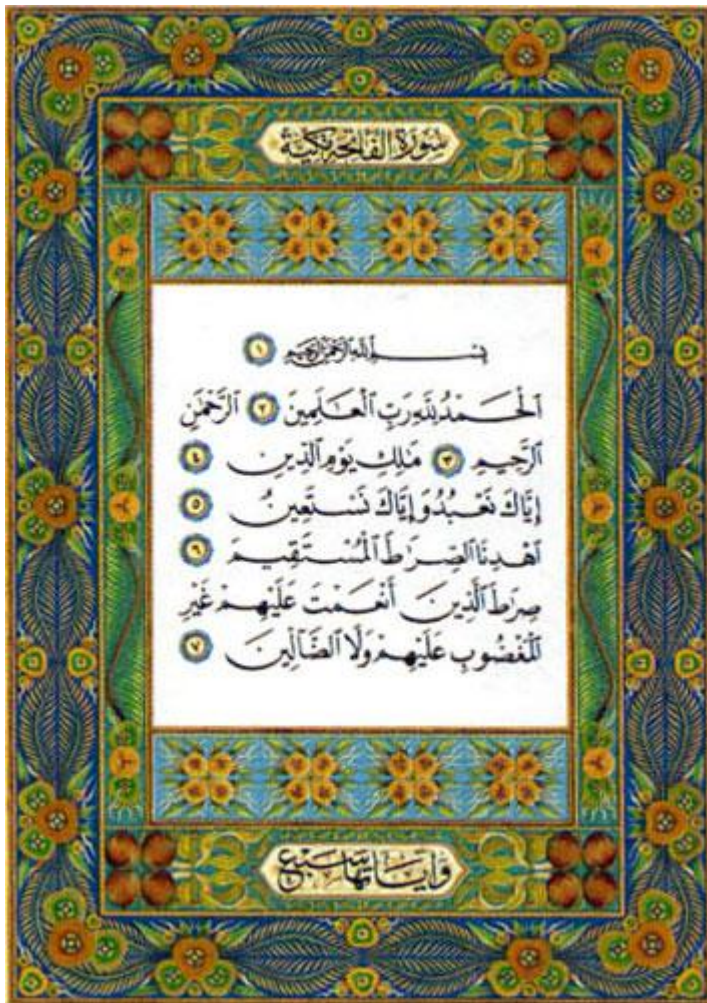 سُورَةُ الفَاتِحَةِ مَكِّيَّة
بِسْمِ ٱللَّهِ ٱلرَّحْمَٰنِ ٱلرَّحِيمِ ١
ٱلْحَمْدُ لِلَّهِ رَبِّ ٱلْعَٰلَمِينَ ٢ ٱلرَّحْمَٰنِ
ٱلرَّحِيمِ ٣ مَٰلِكِ يَوْمِ ٱلدِّينِ ٤
إِيَّاكَ نَعْبُدُ وَإِيَّاكَ نَسْتَعِينُ ٥
ٱهْدِنَا ٱلصِّرَٰطَ ٱلْمُسْتَقِيمَ ٦
صِرَٰطَ ٱلَّذِينَ أَنْعَمْتَ عَلَيْهِمْ غَيْرِ
ٱلْمَغْضُوبِ عَلَيْهِمْ وَلَا ٱلضَّآلِّينَ ٧
وَآيَاتُهَا سَبْع